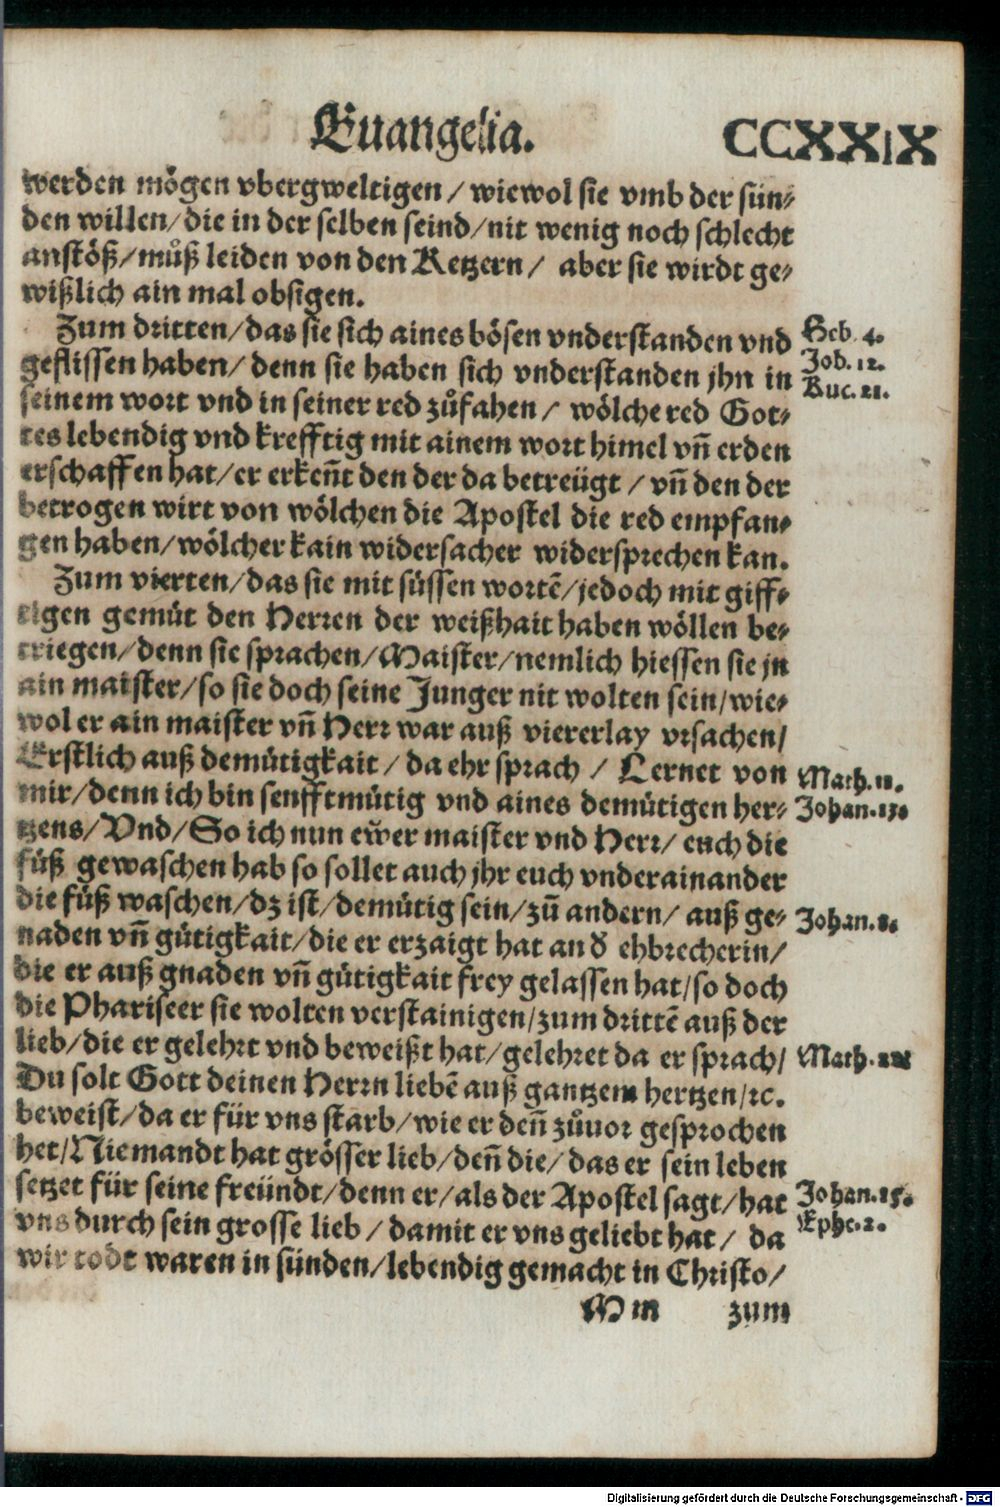 Euangelia. CCXXIX
werden mögen vbergweltigen / wiewol sie vmb der sün-
den willen/die in der selben seind/nit wenig noch schlecht
anstöß/můß leiden von den Ketzern / aber sie wirdt ge-
wißlich ain mal obsigen.
Zum dritten/das sie sich aines bösen vnderstanden vnd
Heb. 4.
geflissen haben/ denn sie haben sich vnderstanden jhn in
Job. 12.
seinem wort vnd in seiner red zůfahen / wölche red Got-
Luc. 21.
tes lebendig vnd krefftig mit ainem wort himel vñ erden
erschaffen hat/er erkeñt den der da betreügt / vñ den der
betrogen wirt von wölchen die Apostel die red empfan-
gen haben/wölcher kain widersacher widersprechen kan.
Zum vierten/das sie mit süssen wortẽ/jedoch mit giff-
tigen gemüt den Herren der weißhait haben wöllen be-
triegen/denn sie sprachen/Maister/nemlich hiessen sie jn
ain maister/so sie doch seine Junger nit wolten sein/wie-
wol er ain maister vñ Herr war auß viererlay vrsachen/
Erstlich auß demütigkait / da ehr sprach / Lernet von
Math. 11.
mir/denn ich bin senfftmütig vnd aines demütigen her-
Johan. 13.
tzens/Vnd/So ich nun eẅer maister vnd Herr/ euch die
füß gewaschen hab so sollet auch jhr euch vnderainander
die füß waschen/dz ist/demütig sein/zů andern/ auß ge-
Johan. 8.
naden vñ gütigkait/die er erzaigt hat an d̕ ehbrecherin/
die er auß gnaden vñ gütigkait frey gelassen hat/so doch
die Phariseer sie wolten verstainigen/zum drittẽ auß der
lieb/die er gelehrt vnd beweißt hat/gelehret da er sprach/
Math. 22.
Du solt Gott deinen Herrn liebẽ auß gantzem hertzen/ꝛc.
beweist/da er für vns starb/wie er deñ zůuor gesprochen
het/Niemandt hat grösser lieb/deñ die/das er sein leben
setzet für seine freündt/denn er/als der Apostel sagt/hat
Johan. 15.
vns durch sein grosse lieb / damit er vns geliebt hat / da
Ephe. 2.
wir todt waren in sünden/lebendig gemacht in Christo/
M m zum
Digitalisierung gefördert durch die Deutsche Forschungsgemeinschaft - DFG